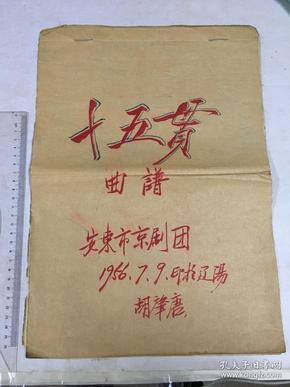 十五贯
曲譜
安東市京剧团
1956.7.9.印於辽陽
胡肇
孔夫子旧书网